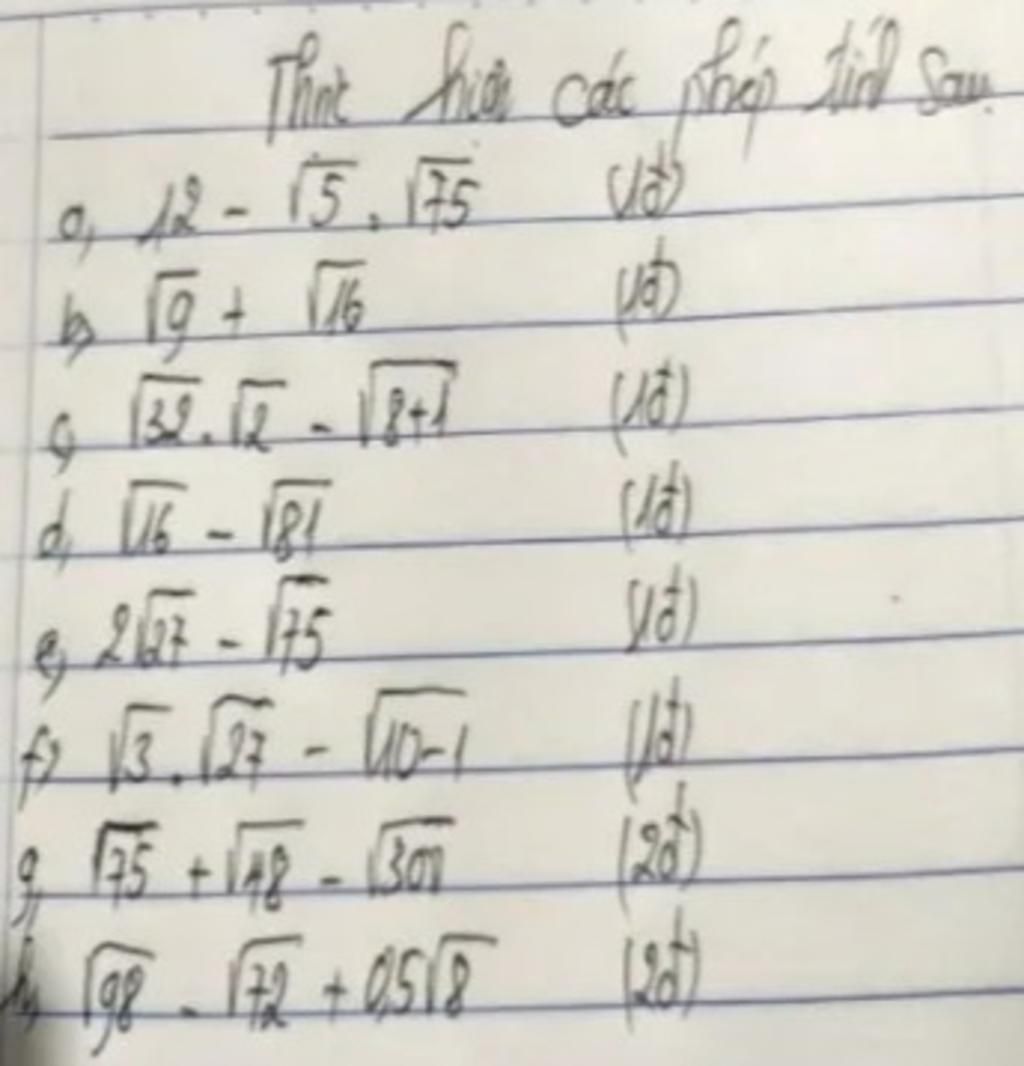 Thực hiện các phép tính sau.
a, 12 - √5 . √75 (1đ)
b, √9 + √16 (1đ)
c, √32 . √2 - √(8+1) (1đ)
d, √16 - √81 (1đ)
e, 2√27 - √75 (1đ)
f, √3 . √27 - √(10-1) (1đ)
g, √75 + √48 - √300 (2đ)
h, √98 - √72 + 0,5√8 (2đ)